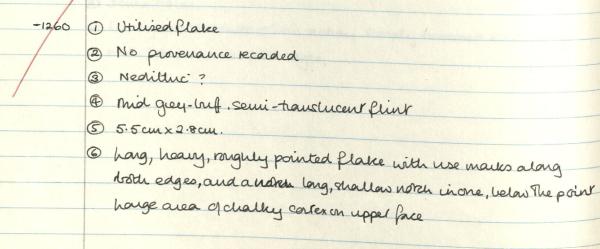 -1260 ① Utilised flake
② No provenance recorded
③ Neolithic ?
④ Mid grey-buff. semi-translucent flint
⑤ 5.5cm x 2.8cm.
⑥ Long, heavy, roughly pointed flake with use marks along
both edges, and a long, shallow notch in one, below the point
Large area of chalky cortex on upper face